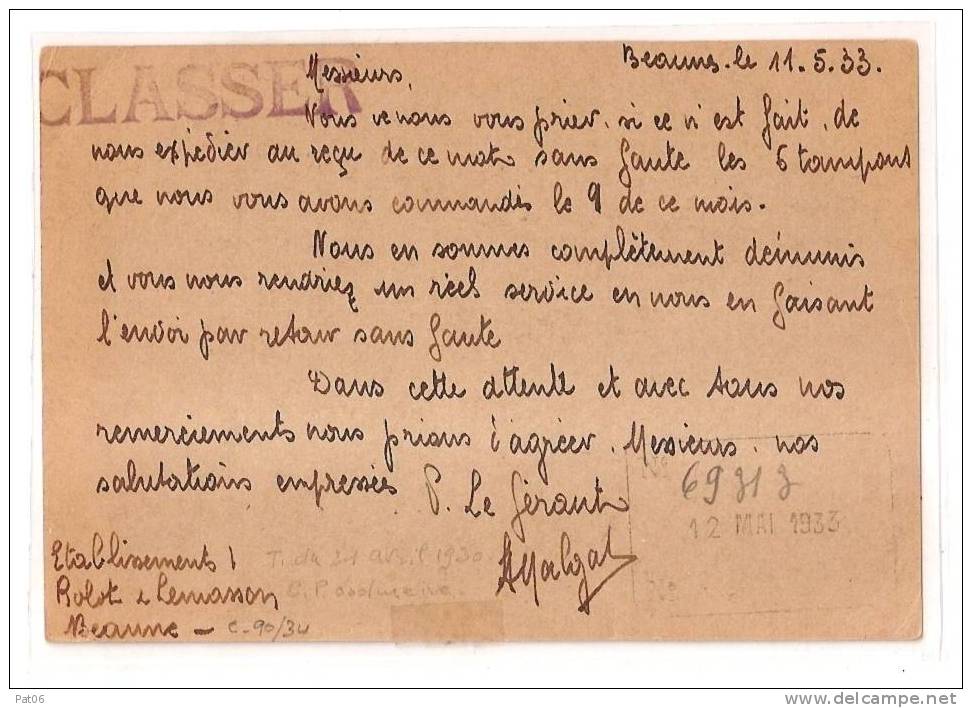 CLASSER
Beaune, le 11.5.33.
Messieurs,
Nous venons vous prier, si ce n'est fait, de
nous expédier au reçu de ce mot sans faute les 6 tampons
que nous vous avons commandés le 9 de ce mois.
Nous en sommes complètement démunis
et vous nous rendriez un réel service en nous en faisant
l'envoi par retour sans faute
Dans cette attente et avec tous nos
remerciements nous prions d'agréer, Messieurs, nos
salutations empressées
P. Le Gérant
No
69313
12 MAI 1933
Etablissements
T. du 24 avril 1930
Rolot & Lemasson
C.P. ordinaire.
Beaune — c-90/34
Pat06
www.delcampe.net